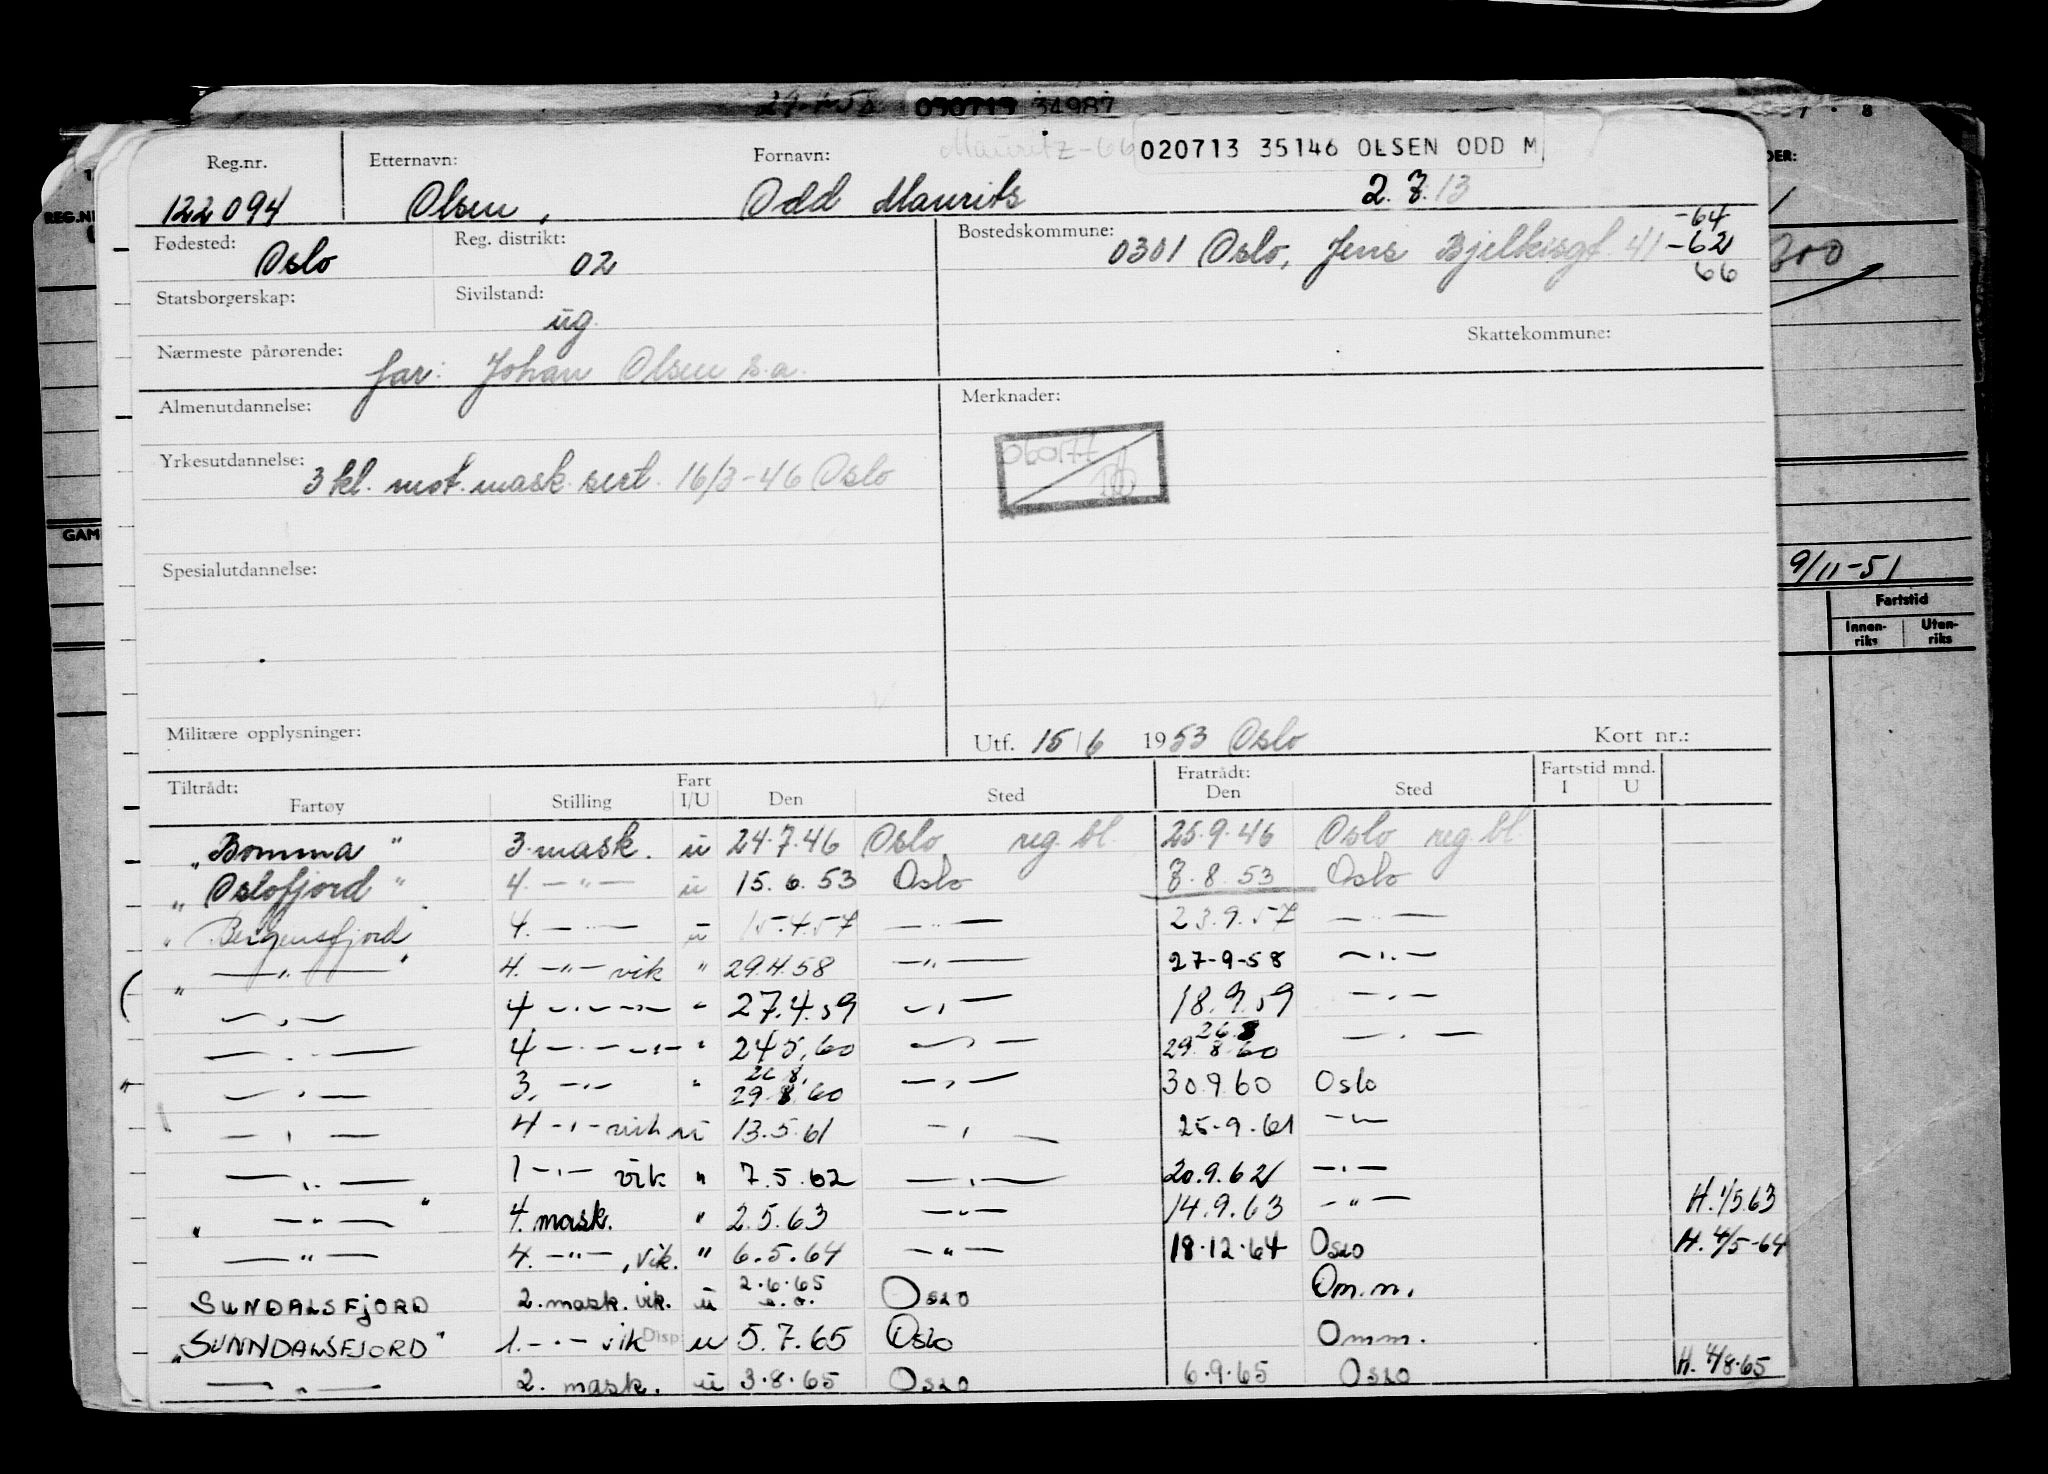 34987
Mauritz-66 020713 35146 OLSEN ODD M
Reg.nr. Etternavn: Fornavn:
122094 Olsen, Odd Maurits 2.7.13
Fødested: Reg. distrikt: Bostedskommune: -64
Oslo 02 0301 Oslo, Jens Bjelkesgt. 41 -62
66
Statsborgerskap: Sivilstand:
ug.
Skattekommune:
Nærmeste pårørende: far: Johan Olsen s.a.
Almenutdannelse: Merknader:
Yrkesutdannelse: 3 kl. mot. mask. sert. 16/3-46 Oslo
060177
Spesialutdannelse:
Militære opplysninger: Utf. 15/6 1953 Oslo Kort nr.:
Tiltrådt: Fart Fratrådt: Fartstid mnd.
Fartøy Stilling I/U Den Sted Den Sted I U
"Bomma" 3. mask. u 24.7.46 Oslo reg. bl. 25.9.46 Oslo reg. bl.
"Oslofjord" 4. —"— u 15.6.53 Oslo 7.8.53 Oslo
"Bergensfjord 4. —"— u 15.4.57 —"— 23.9.57 —"—
" —"— " 4. —"— vik " 29.4.58 —"— 27-9-58 —"—
—"— 4 —"— —"— " 27.4.59 —"— 18.9.59 —"—
26.8
—"— 4 —"— —"— " 24.5.60 —"— 29.8.60 —"—
26.8.
" —"— 3. —"— " 29.8.60 —"— 30.9.60 Oslo
—"— 4 —"— vik u 13.5.61 —"— 25-9-61 —"—
—"— 1 —"— vik " 7.5.62 —"— 20.9.62 —"—
" —"— " 4. mask. " 2.5.63 —"— 14.9.63 —"— H. 1/5.63
—"— 4. —"—, vik. " 6.5.64 —"— 18.12.64 Oslo H. 4/5-64
2.6.65
SUNDALSFJORD 2. mask. vik. u Oslo Om.m.
"SUNNDALSFJORD" 1. —"— vik Disp u 5.7.65 Oslo Omm.
—"— 2. mask. u 3.8.65 Oslo 6.9.65 Oslo H. 4/8-65
REG.N
GAM
9/11-51
Fartstid
Innen-
riks Uten-
riks